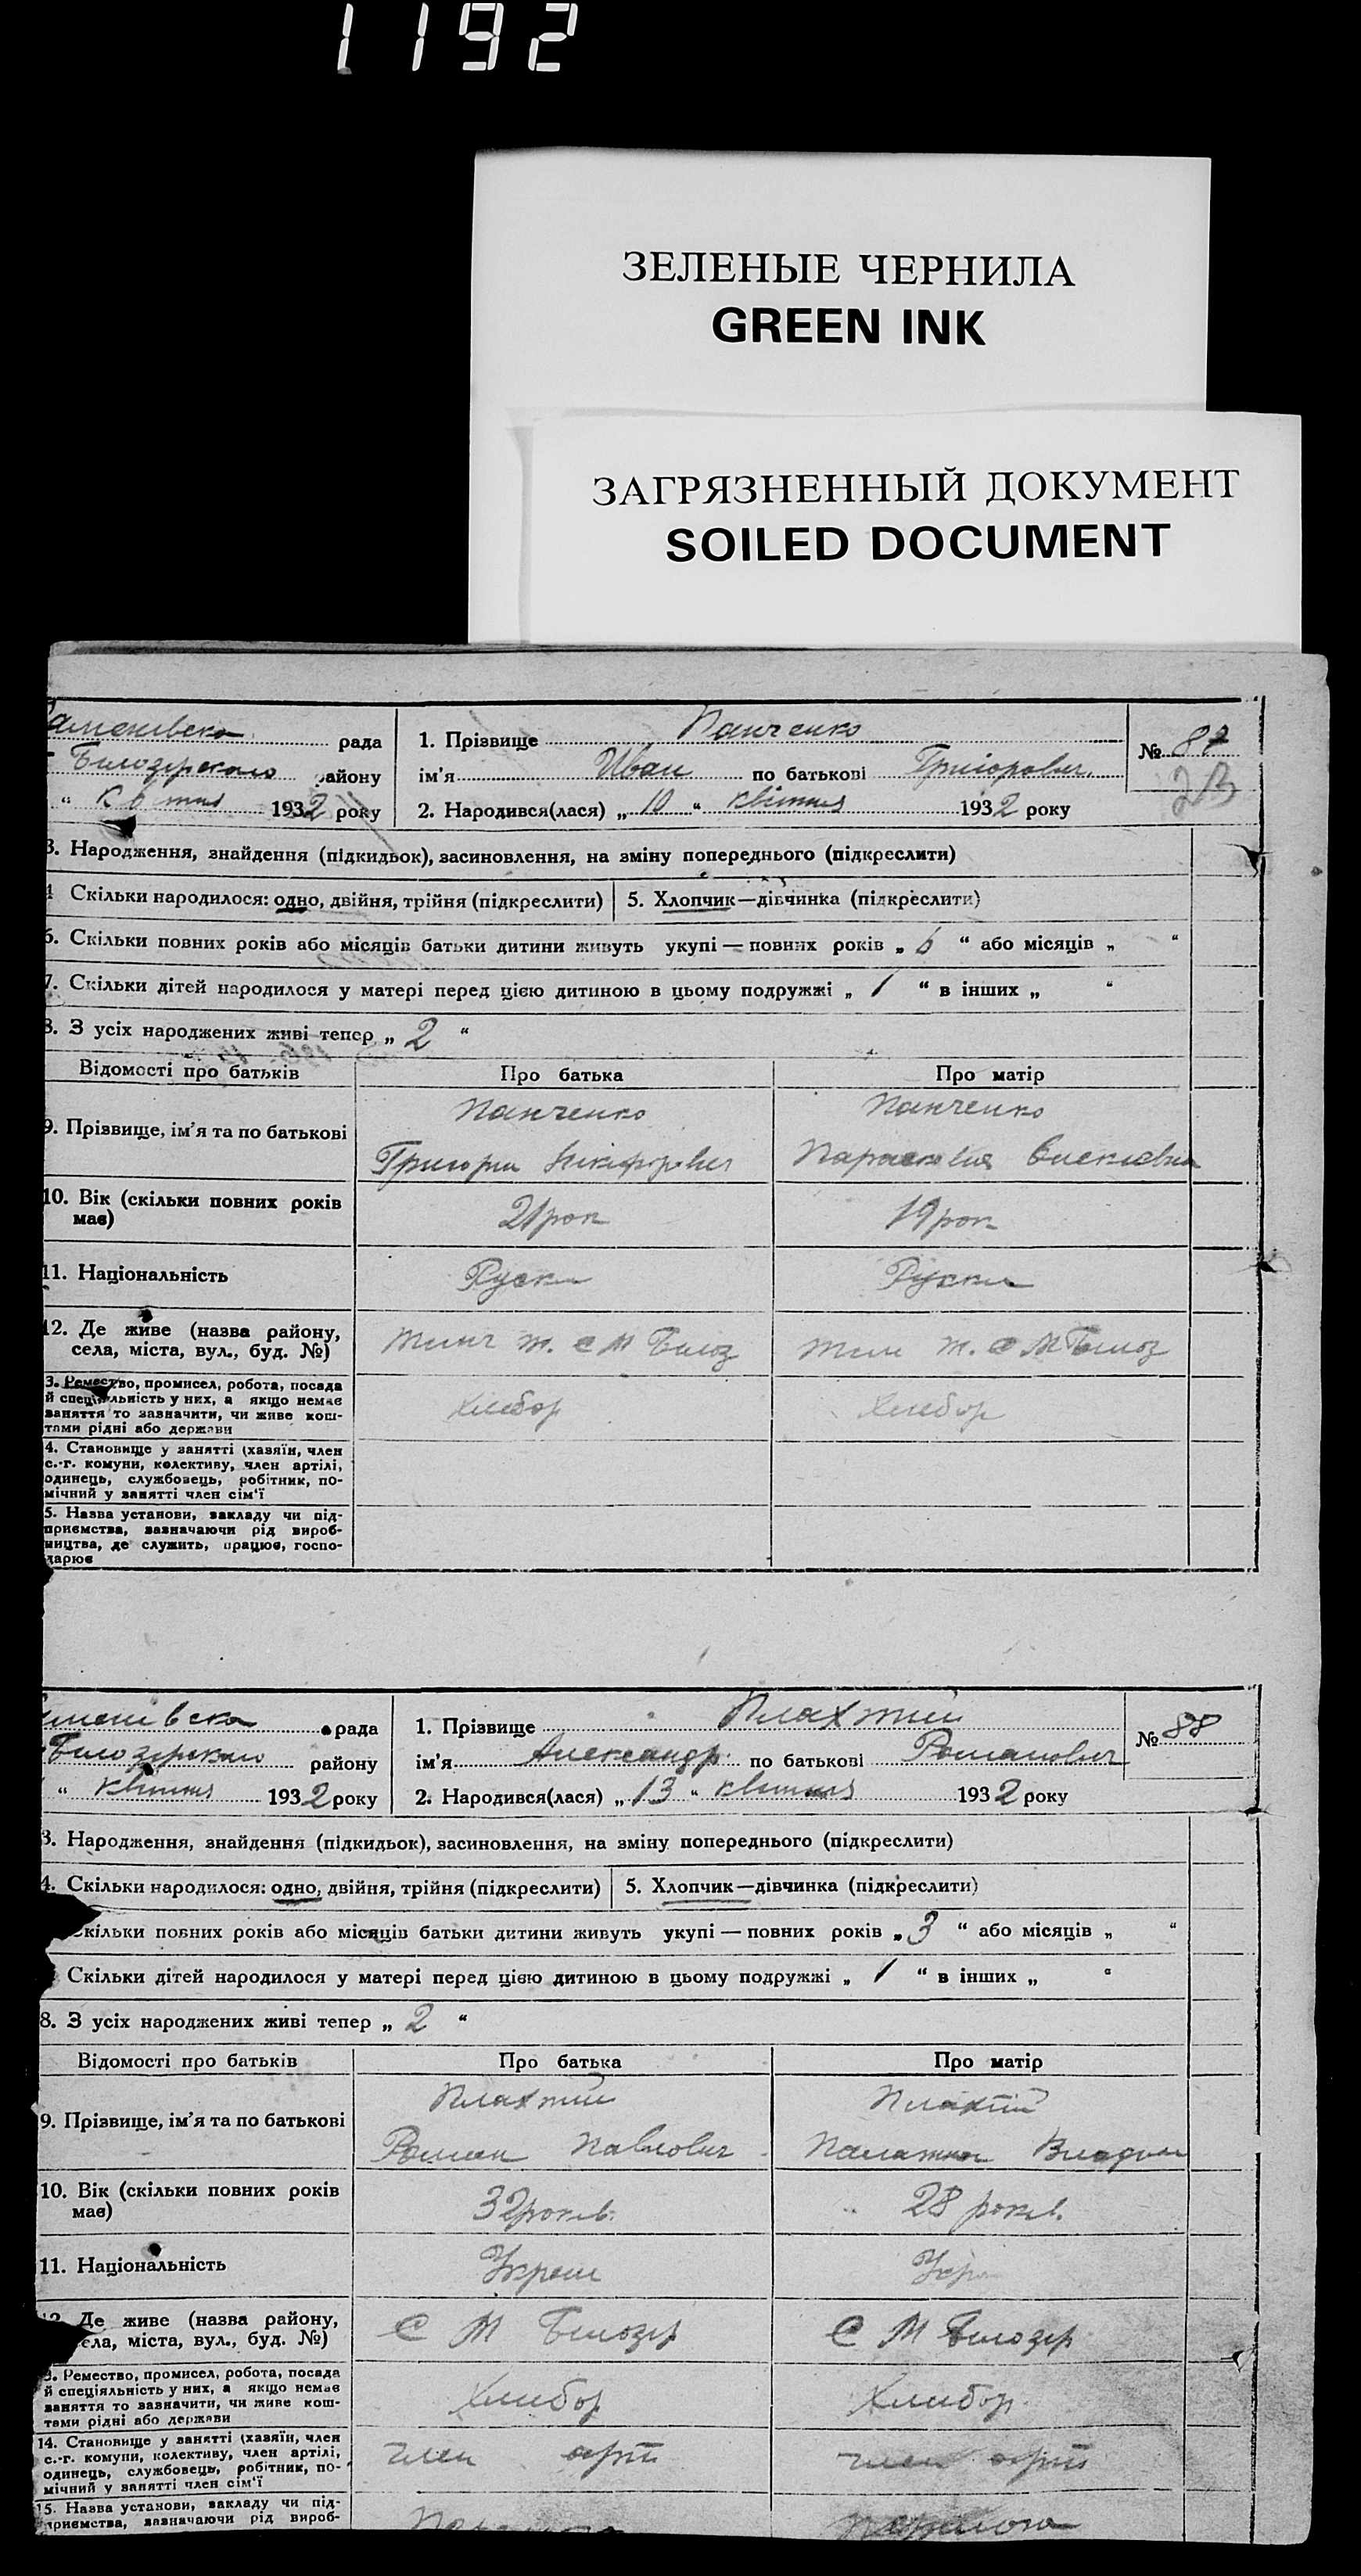 1192
ЗЕЛЕНЫЕ ЧЕРНИЛА
GREEN INK
ЗАГРЯЗНЕННЫЙ ДОКУМЕНТ
SOILED DOCUMENT
рада
Билозерского району
“ квітня 1932 року
1. Прізвище Панченко
ім’я Иван по батькові Григорович
2. Народився(лася) „ 10 “ квітня 1932 року
№ 87
23
3. Народження, знайдення (підкидьок), засиновлення, на зміну попереднього (підкреслити)
4 Скільки народилося: одно, двійня, трійня (підкреслити)
5. Хлопчик—дівчинка (підкреслити)
6. Скільки повних років або місяців батьки дитини живуть укупі — повних років „ 6 “ або місяців „ “
7. Скільки дітей народилося у матері перед цією дитиною в цьому подружжі „ 1 “ в інших „ “
8. З усіх народжених живі тепер „ 2 “
Відомості про батьків
Про батька
Про матір
9. Прізвище, ім’я та по батькові
Панченко
Панченко
Григори Никифорович
Парасковия
10. Вік (скільки повних років
має)
21 рок
19 рок
11. Національність
Руски
Руски
12. Де живе (назва району,
села, міста, вул., буд. №)
ж. с М Билоз
ж. с М Билоз
3. Ремество, промисел, робота, посада
й спеціяльність у них, а якщо немає
заняття то зазначити, чи живе кош-
тами рідні або держави
хлибор
хлибор
4. Становище у занятті (хазяїн, член
с.-г. комуни, колективу, член артілі,
одинець, службовець, робітник, по-
мічний у занятті член сім’ї
5. Назва установи, закладу чи під-
приємства, зазначаючи рід вироб-
ництва, де служить, працює, госпо-
дарює
рада
Билозерского району
“ квітня 1932 року
1. Прізвище Плахтий
ім’я Александр по батькові Романович
2. Народився(лася) „ 13 “ квітня 1932 року
№ 88
3. Народження, знайдення (підкидьок), засиновлення, на зміну попереднього (підкреслити)
4. Скільки народилося: одно, двійня, трійня (підкреслити)
5. Хлопчик—дівчинка (підкреслити)
Скільки повних років або місяців батьки дитини живуть укупі — повних років „ 3 “ або місяців „ “
Скільки дітей народилося у матері перед цією дитиною в цьому подружжі „ 1 “ в інших „ “
8. З усіх народжених живі тепер „ 2 “
Відомості про батьків
Про батька
Про матір
9. Прізвище, ім’я та по батькові
Плахтий
Плахтий
Роман Павлович
Палажка
10. Вік (скільки повних років
має)
32 років
28 років
11. Національність
Украи
Укра
12. Де живе (назва району,
села, міста, вул., буд. №)
с М Билозер
с М Билозер
3. Ремество, промисел, робота, посада
й спеціяльність у них, а якщо немає
заняття то зазначити, чи живе кош-
тами рідні або держави
Хлибор
Хлибор
14. Становище у занятті (хазяїн, член
с.-г. комуни, колективу, член артілі,
одинець, службовець, робітник, по-
мічний у занятті член сім’ї
член арт
член арт
15. Назва установи, закладу чи під-
приємства, зазначаючи рід вироб-